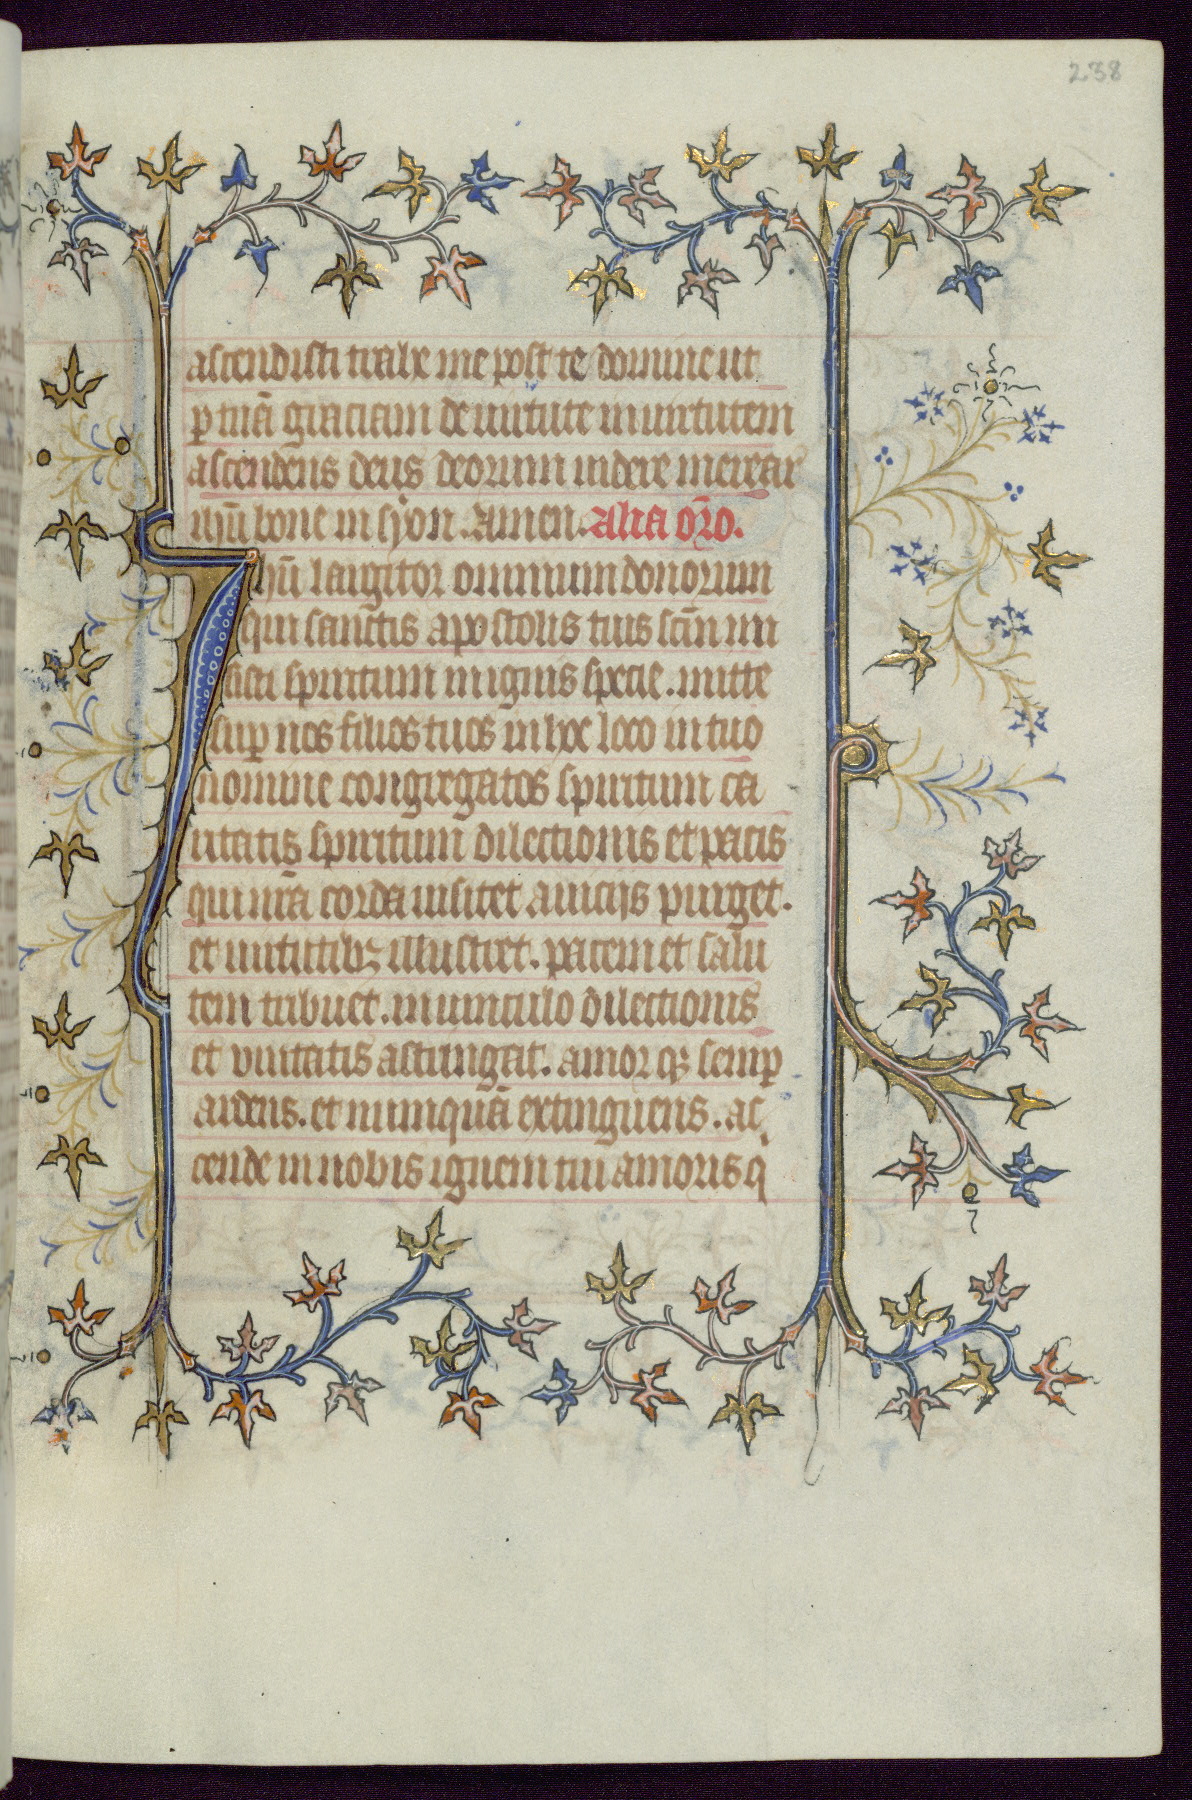 238
ascendisti trahe me post te domine ut
p tuā graciam de uirtute in uirtutem
ascendens deus deorum uidere merear
ihū bone in syon. Amen. Alia ōro.
Ihū largitor omnium donorum
qui sanctis apostolis tuis scm in
signis spiritum in ignis specie. mitte
sup nos filios tuos in hoc loco in tuo
nomine congregatos spiritum ca
ritatis spiritum dilectionis et pacis
qui nrā corda uisitet a uicijs purget.
et uirtutibꝫ illustret. pacem et salu
tem tribuet. in uinculo dilectionis
et ueritatis astringat. amor qꝫ semp
ardens. et nunquā extinguens. ac
cende in nobis ignem tui amoris q